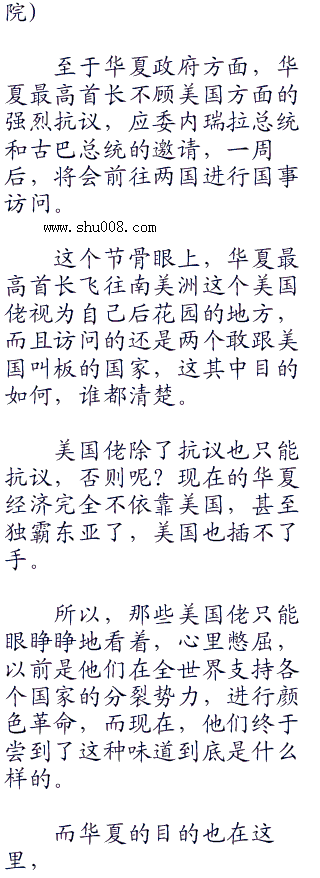 院）
至于华夏政府方面，华
夏最高首长不顾美国方面的
强烈抗议，应委内瑞拉总统
和古巴总统的邀请，一周
后，将会前往两国进行国事
访问。
www.shu008.com
这个节骨眼上，华夏最
高首长飞往南美洲这个美国
佬视为自己后花园的地方，
而且访问的还是两个敢跟美
国叫板的国家，这其中目的
如何，谁都清楚。
美国佬除了抗议也只能
抗议，否则呢？现在的华夏
经济完全不依靠美国，甚至
独霸东亚了，美国也插不了
手。
所以，那些美国佬只能
眼睁睁地看着，心里憋屈，
以前是他们在全世界支持各
个国家的分裂势力，进行颜
色革命，而现在，他们终于
尝到了这种味道到底是什么
样的。
而华夏的目的也在这
里，